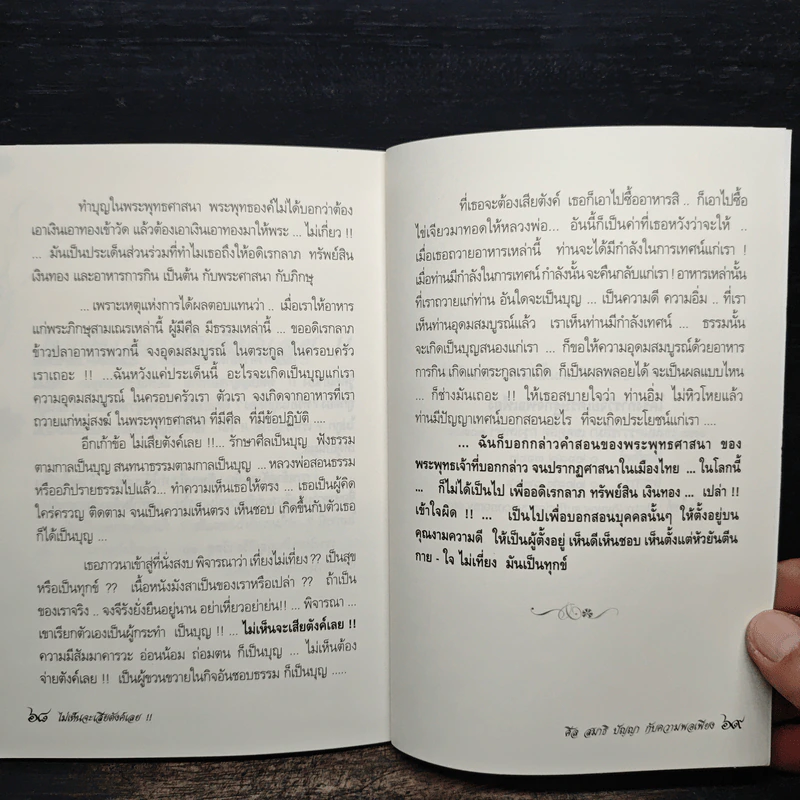 ทำบุญในพระพุทธศาสนา พระพุทธองค์ไม่ได้บอกว่าต้อง
เอาเงินเอาทองเข้าวัด แล้วต้องเอาเงินเอาทองมาให้พระ ... ไม่เกี่ยว !!
... มันเป็นประเด็นส่วนร่วมที่ทำไมเธอถึงให้อดิเรกลาภ ทรัพย์สิน
เงินทอง และอาหารการกิน เป็นต้น กับพระศาสนา กับภิกษุ
... เพราะเหตุแห่งการได้ผลตอบแทนว่า .. เมื่อเราให้อาหาร
แก่พระภิกษุสามเณรเหล่านี้ ผู้มีศีล มีธรรมเหล่านี้ ... ขออดิเรกลาภ
ข้าวปลาอาหารพวกนี้ จงอุดมสมบูรณ์ ในตระกูล ในครอบครัว
เราเถอะ !! ...ฉันหวังแค่ประเด็นนี้ อะไรจะเกิดเป็นบุญแก่เรา
ความอุดมสมบูรณ์ ในครอบครัวเรา ตัวเรา จงเกิดจากอาหารที่เรา
ถวายแก่หมู่สงฆ์ ในพระพุทธศาสนา ที่มีศีล ที่มีข้อปฏิบัติ ....
อีกเก้าข้อ ไม่เสียตังค์เลย !!... รักษาศีลเป็นบุญ ฟังธรรม
ตามกาลเป็นบุญ สนทนาธรรมตามกาลเป็นบุญ ... หลวงพ่อสอนธรรม
หรืออภิปรายธรรมไปแล้ว... ทำความเห็นเธอให้ตรง ... เธอเป็นผู้คิด
ใคร่ครวญ ติดตาม จนเป็นความเห็นตรง เห็นชอบ เกิดขึ้นกับตัวเธอ
ก็ได้เป็นบุญ ...
เธอภาวนาเข้าสู่ที่นั่งสงบ พิจารณาว่า เที่ยงไม่เที่ยง ?? เป็นสุข
หรือเป็นทุกข์ ?? เนื้อหนังมังสาเป็นของเราหรือเปล่า ?? ถ้าเป็น
ของเราจริง .. จงจีรังยั่งยืนอยู่นาน อย่าเหี่ยวอย่าย่น!! ... พิจารณา ...
เขาเรียกตัวเองเป็นผู้กระทำ เป็นบุญ !! ... ไม่เห็นจะเสียตังค์เลย !!
ความมีสัมมาคารวะ อ่อนน้อม ถ่อมตน ก็เป็นบุญ ... ไม่เห็นต้อง
จ่ายตังค์เลย !! เป็นผู้ขวนขวายในกิจอันชอบธรรม ก็เป็นบุญ .....
๖๘ ไม่เห็นจะเสียตังค์เลย !!
ที่เธอจะต้องเสียตังค์ เธอก็เอาไปซื้ออาหารสิ .. ก็เอาไปซื้อ
ไข่เจียวมาทอดให้หลวงพ่อ... อันนี้ก็เป็นค่าที่เธอหวังว่าจะให้ ..
เมื่อเธอถวายอาหารเหล่านี้ ท่านจะได้มีกำลังในการเทศน์แก่เรา !
เมื่อท่านมีกำลังในการเทศน์ กำลังนั้น จะคืนกลับแก่เรา ! อาหารเหล่านั้น
ที่เราถวายแก่ท่าน อันใดจะเป็นบุญ ... เป็นความดี ความอิ่ม .. ที่เรา
เห็นท่านอุดมสมบูรณ์แล้ว เราเห็นท่านมีกำลังเทศน์ ... ธรรมนั้น
จะเกิดเป็นบุญสนองแก่เรา ... ก็ขอให้ความอุดมสมบูรณ์ด้วยอาหาร
การกิน เกิดแก่ตระกูลเราเถิด ก็เป็นผลพลอยได้ จะเป็นผลแบบไหน
... ก็ช่างมันเถอะ !! ให้เธอสบายใจว่า ท่านอิ่ม ไม่หิวโหยแล้ว
ท่านมีปัญญาเทศน์บอกสอนอะไร ที่จะเกิดประโยชน์แก่เรา ....
... ฉันก็บอกกล่าวคำสอนของพระพุทธศาสนา ของ
พระพุทธเจ้าที่บอกกล่าว จนปรากฏศาสนาในเมืองไทย ... ในโลกนี้
... ก็ไม่ได้เป็นไป เพื่ออดิเรกลาภ ทรัพย์สิน เงินทอง ... เปล่า !!
เข้าใจผิด !! ... เป็นไปเพื่อบอกสอนบุคคลนั้นๆ ให้ตั้งอยู่บน
คุณงามความดี ให้เป็นผู้ตั้งอยู่ เห็นดีเห็นชอบ เห็นตั้งแต่หัวยันตีน
กาย - ใจ ไม่เที่ยง มันเป็นทุกข์
ศีล สมาธิ ปัญญา กับความพอเพียง ๖๙